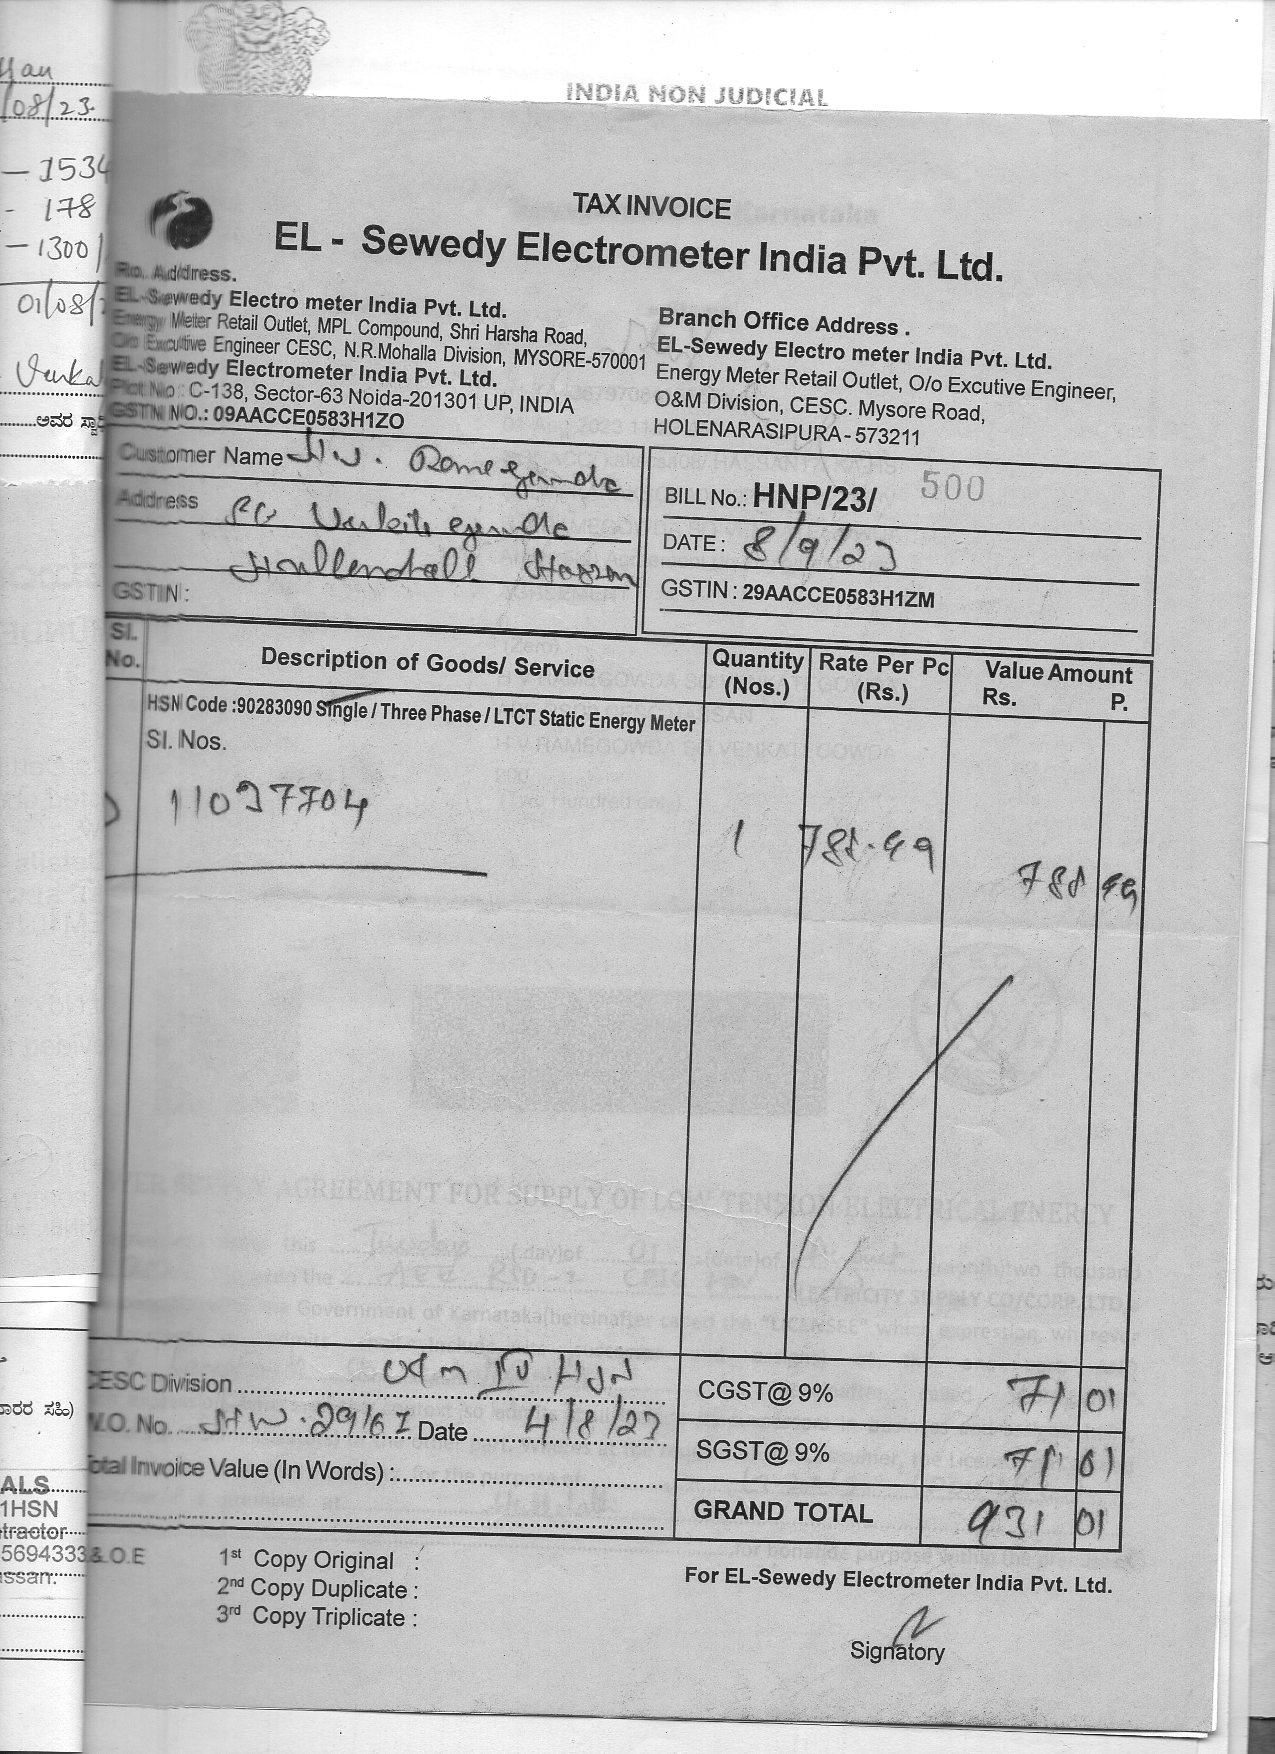 INDIA NON JUDICIAL
TAX INVOICE
EL - Sewedy Electrometer India Pvt. Ltd.
Ro. Address.
EL-Sewedy Electro meter India Pvt. Ltd.
Energy Meter Retail Outlet, MPL Compound, Shri Harsha Road,
O/o Excutive Engineer CESC, N.R.Mohalla Division, MYSORE-570001
EL-Sewedy Electrometer India Pvt. Ltd.
Plot No : C-138, Sector-63 Noida-201301 UP, INDIA
GSTN NO.: 09AACCE0583H1ZO
Branch Office Address .
EL-Sewedy Electro meter India Pvt. Ltd.
Energy Meter Retail Outlet, O/o Excutive Engineer,
O&M Division, CESC. Mysore Road,
HOLENARASIPURA - 573211
Customer Name H.V. Ramegowda
Address Venkategowda
Hassan
GSTIN :
BILL No.: HNP/23/ 500
DATE : 8/9/23
GSTIN : 29AACCE0583H1ZM
Sl. No. Description of Goods/ Service Quantity (Nos.) Rate Per Pc (Rs.) Value Amount Rs. P.
HSN Code :90283090 Single / Three Phase / LTCT Static Energy Meter
Sl. Nos.
11037704 1 788.99 788 99
CESC Division HSN
W.O. No. Date 4/8/23
Total Invoice Value (In Words) :
CGST@ 9% 71 01
SGST@ 9% 71 01
GRAND TOTAL 931 01
E.& O.E
1st Copy Original :
2nd Copy Duplicate :
3rd Copy Triplicate :
For EL-Sewedy Electrometer India Pvt. Ltd.
Signatory
/08/23
- 1534
- 178
- 1300/
01/08/
Venka
ಅವರ
ALS
1HSN
tractor
5694333
ssan.